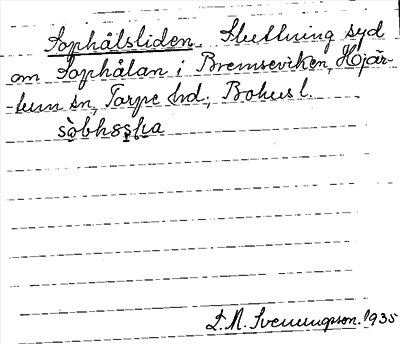 Sophålsliden. Sluttning syd
om Sophålan i Bremseviken, Hjär-
-tum sn, Torpe hd, Bohusl.
L. M. Svenungsson. 1935